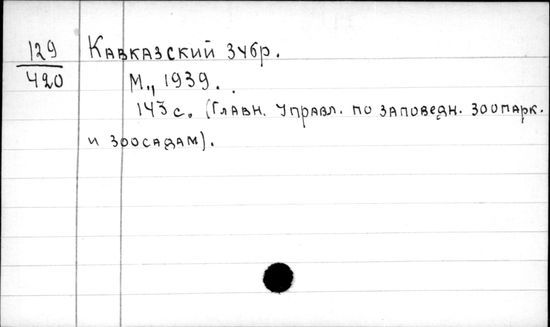 129 Кавказский зубр.
420 М., 1939.
143 с. (Главн. управл. по заповедн. зоопарк.
и зоосадам).